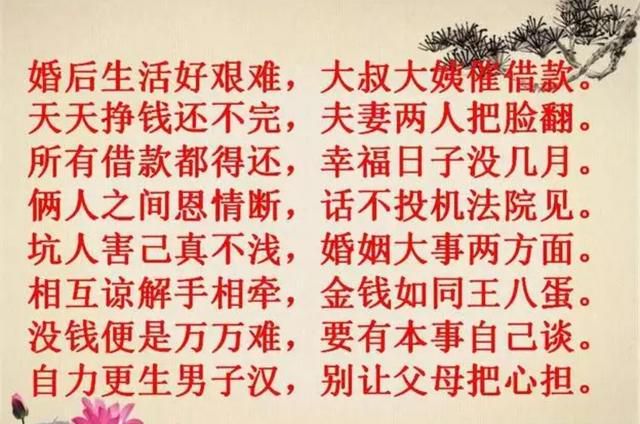 婚后生活好艰难，大叔大姨催借款。
天天挣钱还不完，夫妻两人把脸翻。
所有借款都得还，幸福日子没几月。
俩人之间恩情断，话不投机法院见。
坑人害己真不浅，婚姻大事两方面。
相互谅解手相牵，金钱如同王八蛋。
没钱便是万万难，要有本事自己谈。
自力更生男子汉，别让父母把心担。